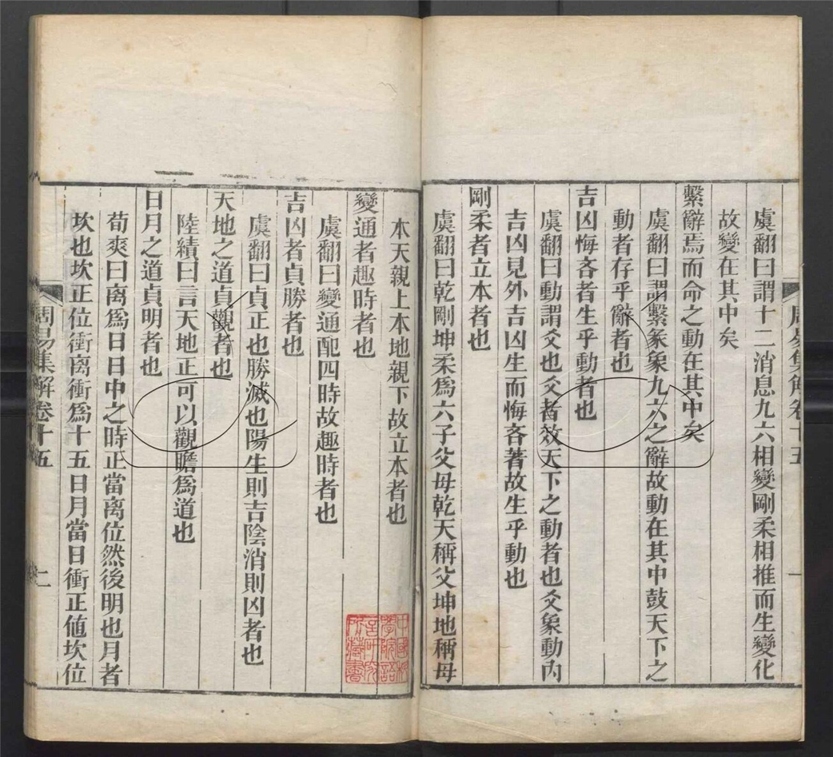 虞翻曰謂十二消息九六相變剛柔相推而生變化
故變在其中矣
繫辭焉而命之動在其中矣
虞翻曰謂繫彖象九六之辭故動在其中鼓天下之
動者存乎辭者也
吉凶悔吝者生乎動者也
虞翻曰動謂爻也爻者效天下之動者也爻象動內
吉凶見外吉凶生而悔吝著故生乎動也
剛柔者立本者也
虞翻曰乾剛坤柔爲六子父母乾天稱父坤地稱母
周易集解卷十五
一
本天親上本地親下故立本者也
變通者趣時者也
虞翻曰變通配四時故趣時者也
吉凶者貞勝者也
虞翻曰貞正也勝滅也陽生則吉陰消則凶者也
天地之道貞觀者也
陸績曰言天地正可以觀瞻爲道也
日月之道貞明者也
荀爽曰离爲日日中之時正當离位然後明也月者
坎也坎正位衝离衝爲十五日月當日衝正値坎位
周易集解卷十五
二